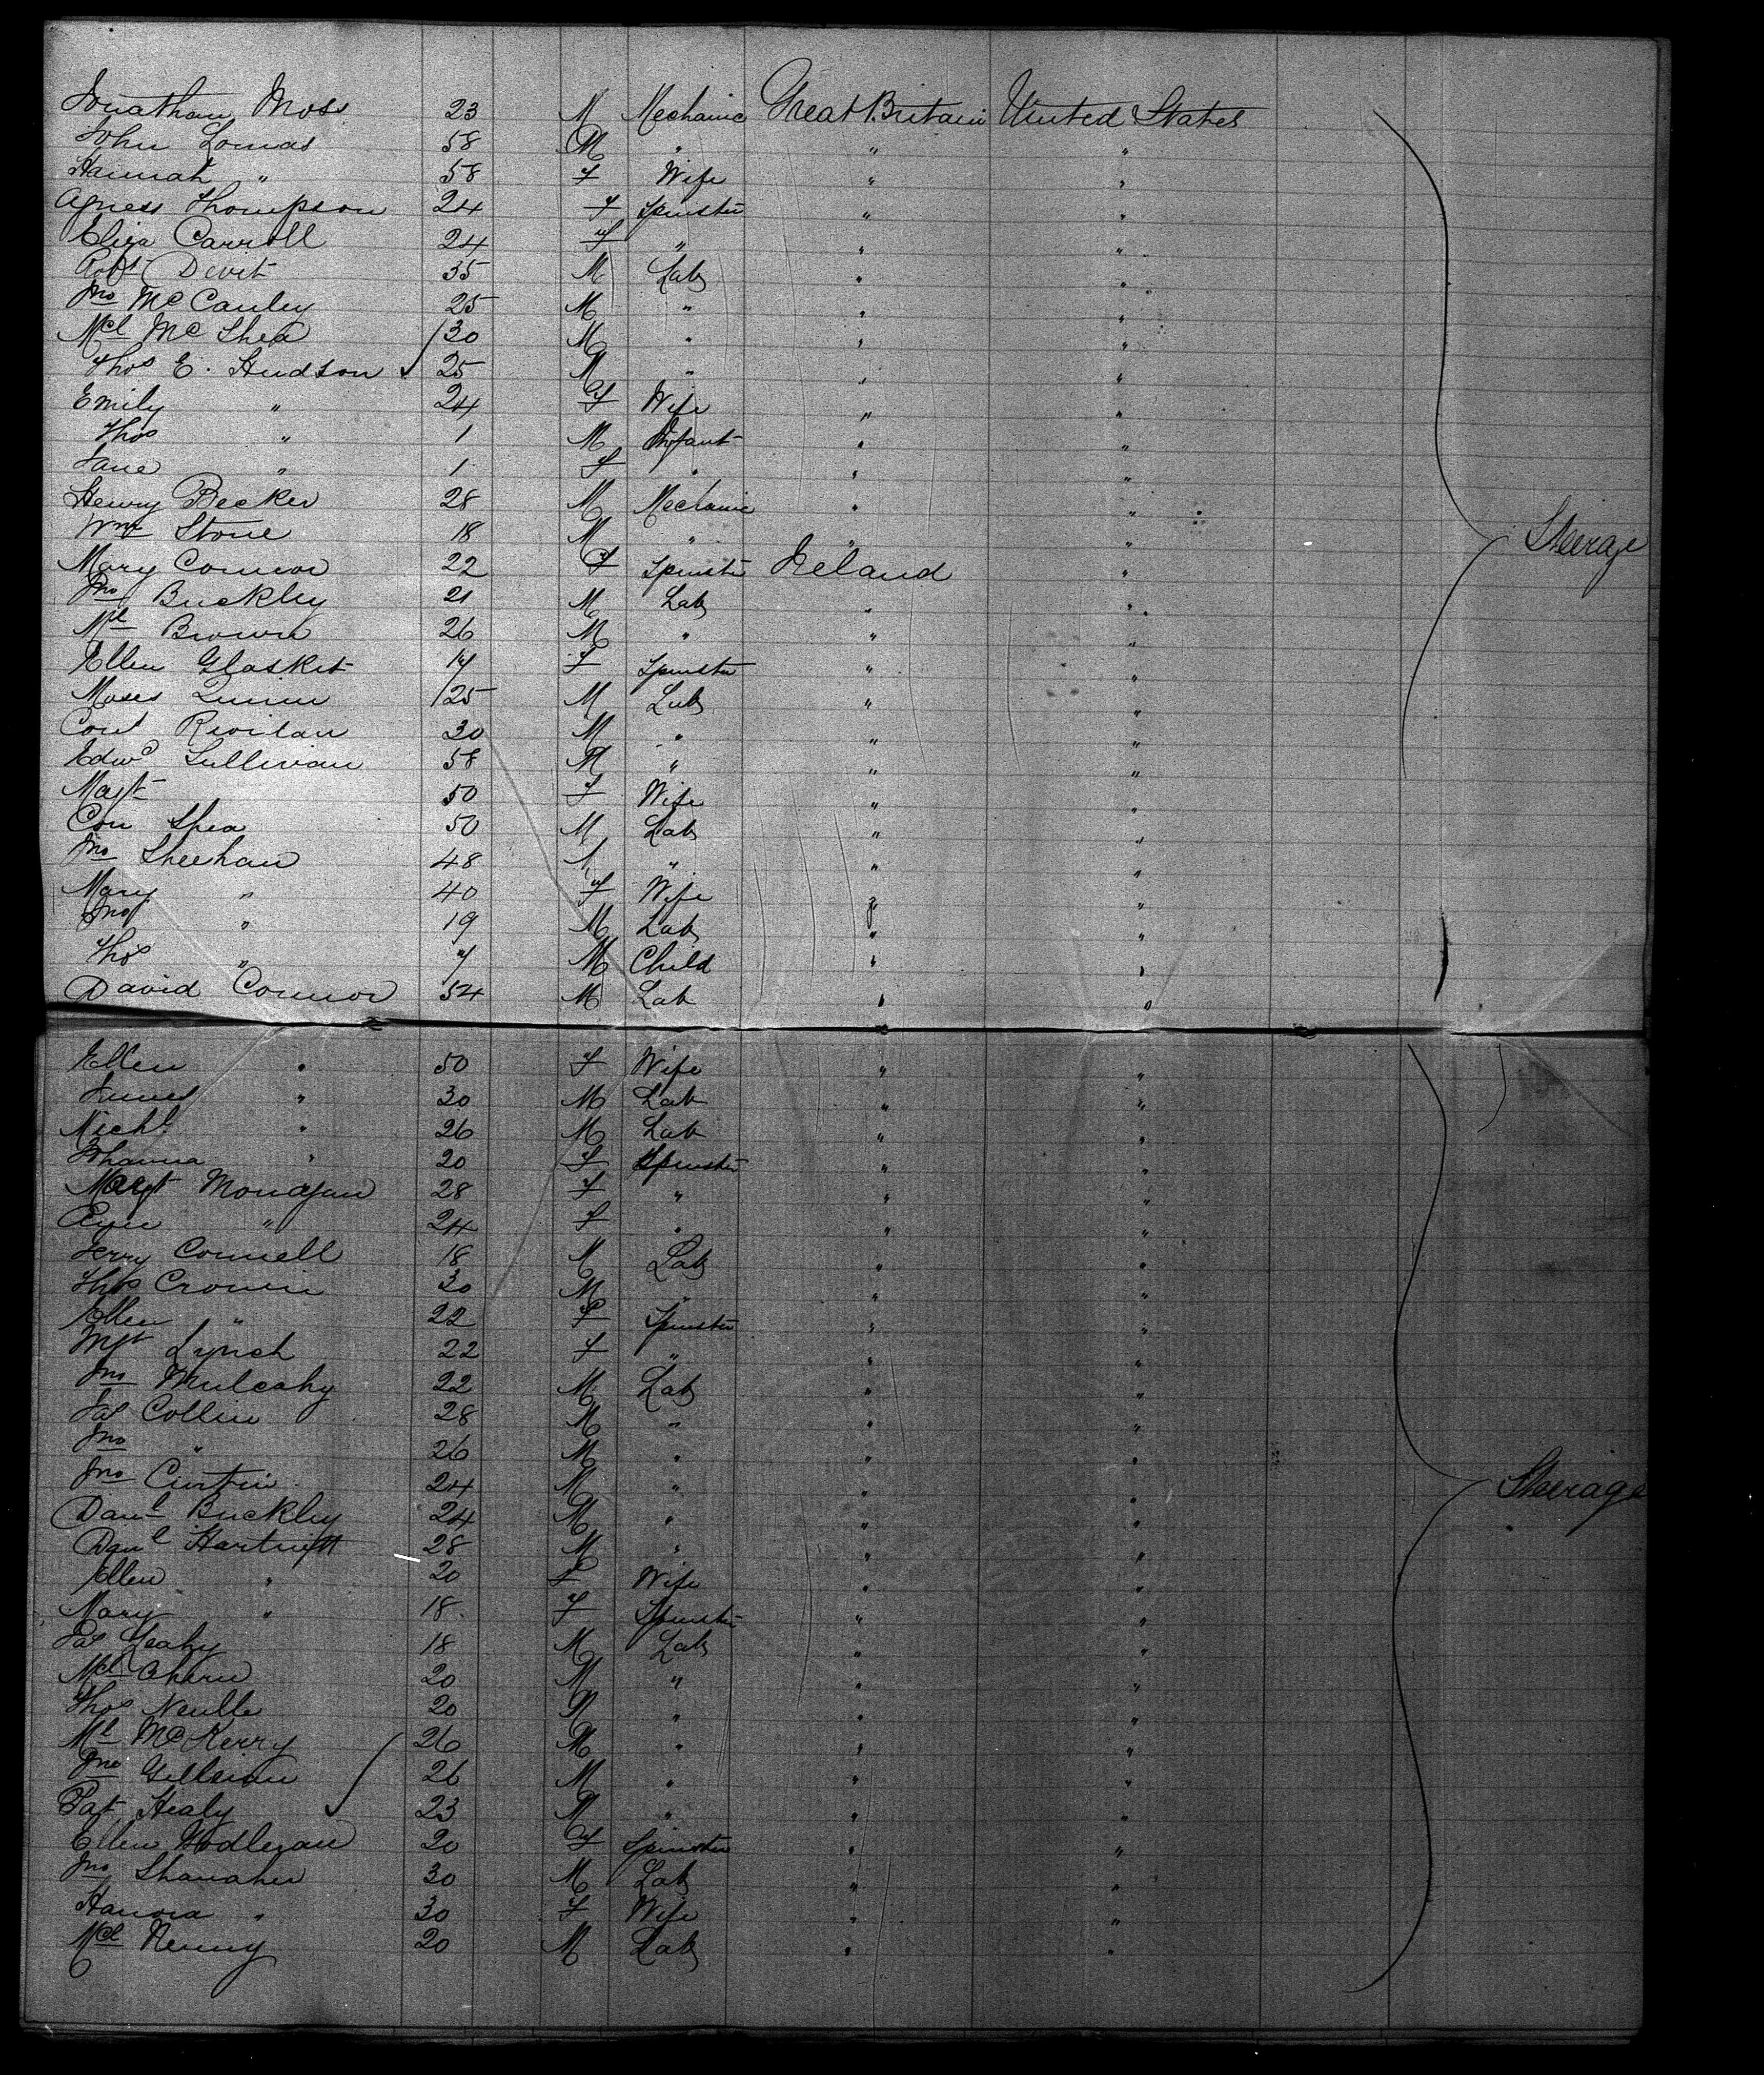 Jonathan Moss 23 M Mechanic Great Britain United States
John Lomas 58 M " " "
Hannah " 58 F Wife " "
Agness Thompson 24 F Spinster " "
Eliza Carroll 24 F " " "
Robt Devit 35 M Lab " "
Jno McCauley 25 M " " "
Mcl McShea 30 M " " "
Thos E. Hudson 25 M " " "
Emily " 24 F Wife " "
Thos " 1 M Infant " "
Jane " 1 F " " "
Henry Becker 28 M Mechanic " "
Wm Stone 18 M " " " Steerage
Mary Connor 22 F Spinster Ireland "
Jno Buckley 21 M Lab " "
Ml Brown 26 M " " "
Ellen Glasket 17 F Spinster " "
Moses Quinn 25 M Lab " "
Con Riordan 30 M " " "
Edwd Sullivan 58 M " " "
Magt 50 F Wife " "
Con Shea 50 M Lab " "
Jno Sheehan 48 M " " "
Mary " 40 F Wife " "
Jno " 19 M Lab " "
Thos " 7 M Child " "
David Connor 54 M Lab " "
Ellen " 50 F Wife " "
James " 30 M Lab " "
Michl " 26 M Lab " "
Johanna " 20 F Spinster " "
Margt Monagan 28 F " " "
" 24 F " " "
Jerry Connell 18 M Lab " "
Thos Cronin 30 M " " "
Ellen " 22 F Spinster " "
Mgt Lynch 22 F " " "
Jno Mulcahy 22 M Lab " "
Jas Collin 28 M " " "
Jno " 26 M " " "
Jno Curtin 24 M " " " Steerage
Danl Buckley 24 M " " "
Danl 28 M " " "
Ellen " 20 F Wife " "
Mary " 18 F Spinster " "
Leahy 18 M Lab " "
Ml Ahern 20 M " " "
Thos Neville 20 M " " "
Ml McKerry 26 M " " "
Jno 26 M " " "
Pat Healy 23 M " " "
Ellen 20 F Spinster " "
Jno Shanaher 30 M Lab " "
Hanora " 30 F Wife " "
Mcl 20 M Lab " "